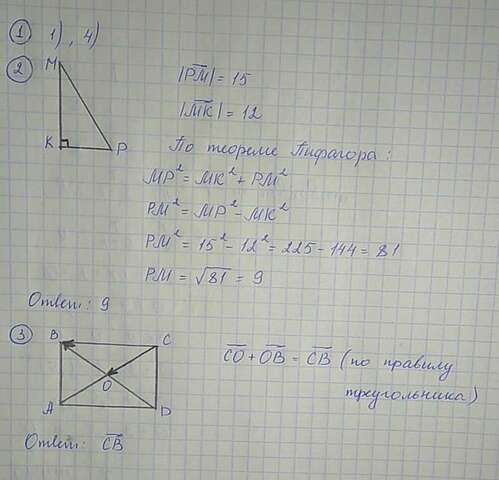 ① 1), 4)
②
M
K
P
|PM̅| = 15
|MK̅| = 12
По теореме Пифагора:
MP² = MK² + PM²
PM² = MP² - MK²
PM² = 15² - 12² = 225 - 144 = 81
PM = √81 = 9
Ответ: 9
③
B
C
O
A
D
C̅O̅ + O̅B̅ = C̅B̅ (по правилу
треугольника)
Ответ: C̅B̅